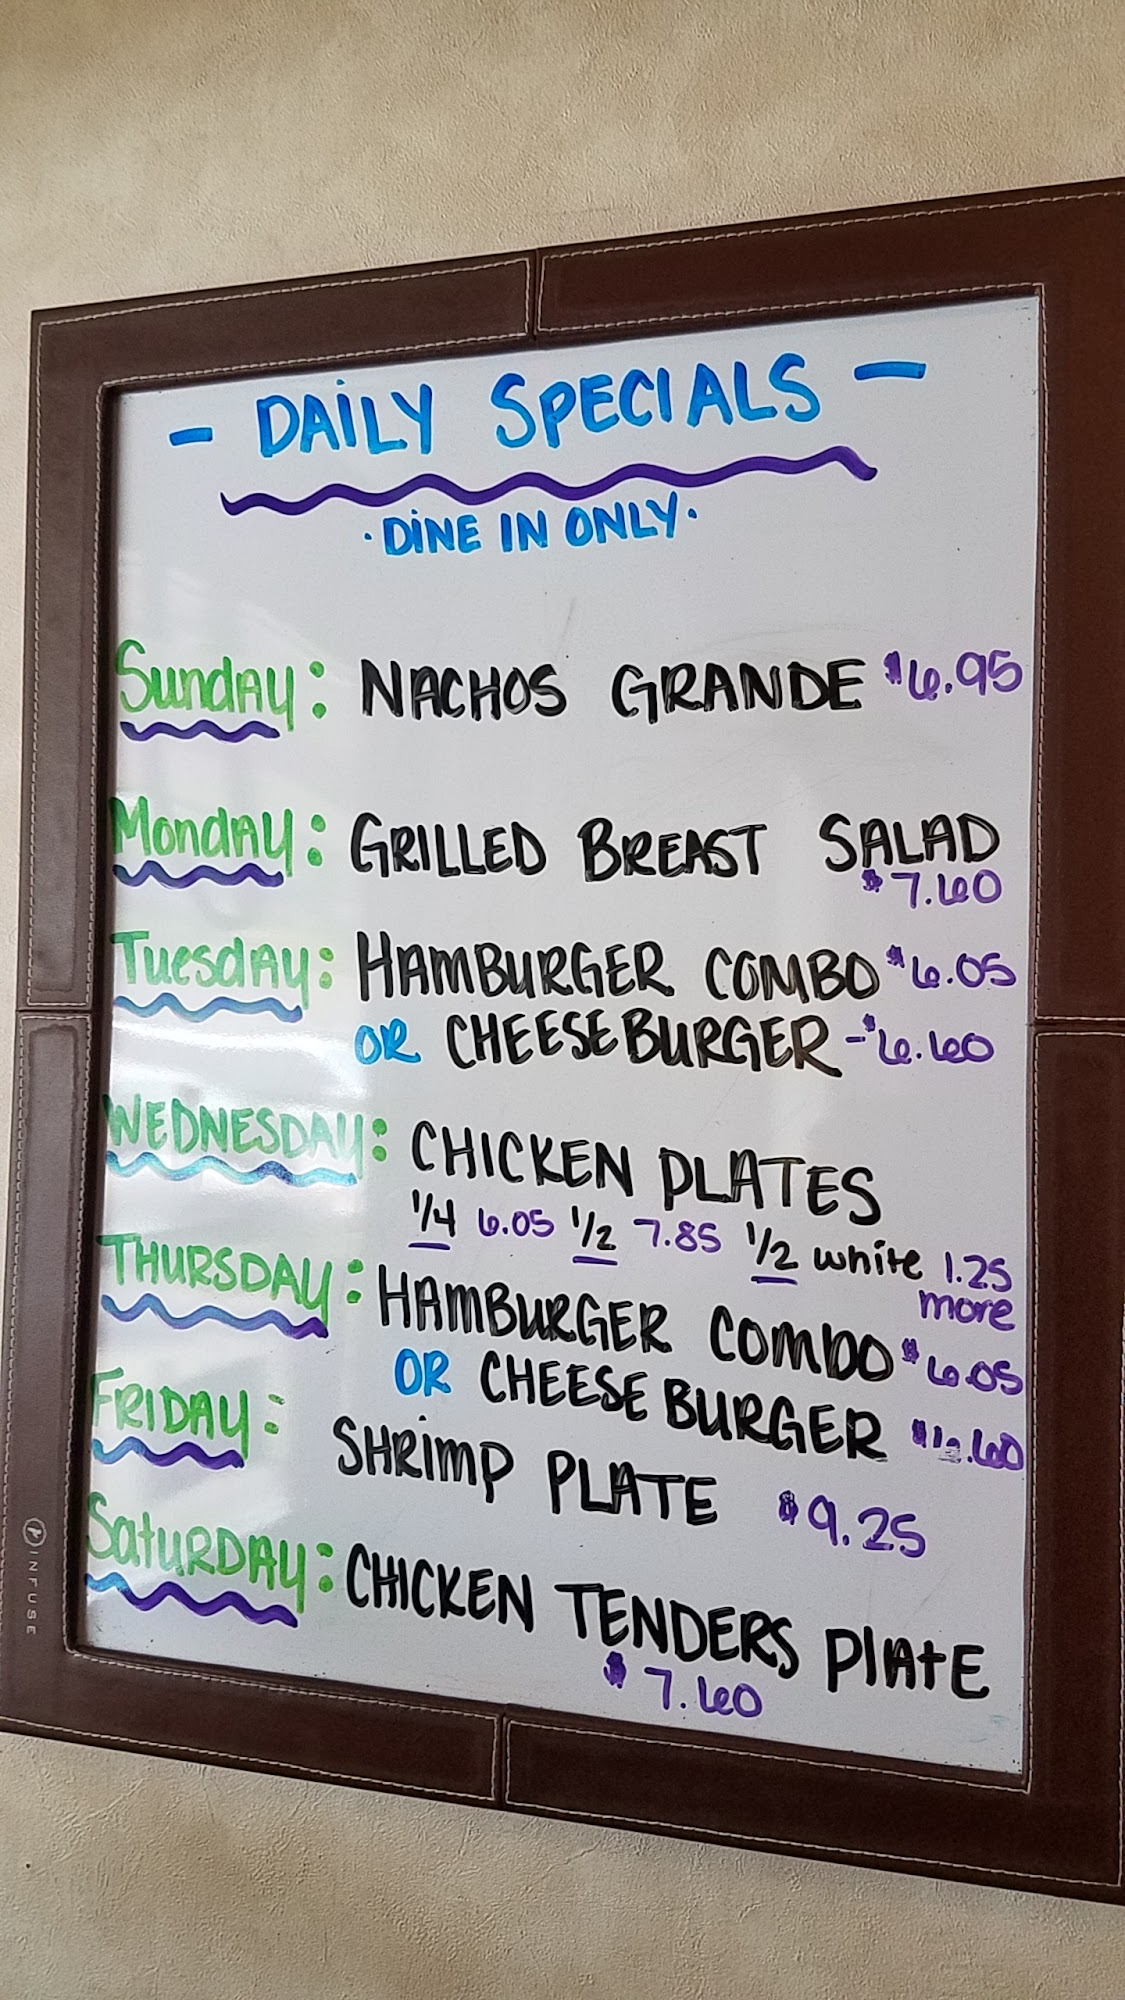 - DAILY SPECIALS -
· DINE IN ONLY ·
Sunday: NACHOS GRANDE $6.95
Monday: GRILLED BREAST SALAD
$7.60
Tuesday: HAMBURGER COMBO $6.05
OR CHEESEBURGER - $6.60
WEDNESDAY: CHICKEN PLATES
1/4 6.05 1/2 7.85 1/2 white 1.25
more
THURSDAY: HAMBURGER COMBO $6.05
OR CHEESEBURGER $6.60
FRIDAY: SHRIMP PLATE $9.25
SATURDAY: CHICKEN TENDERS PLATE
$7.60
INFUSE